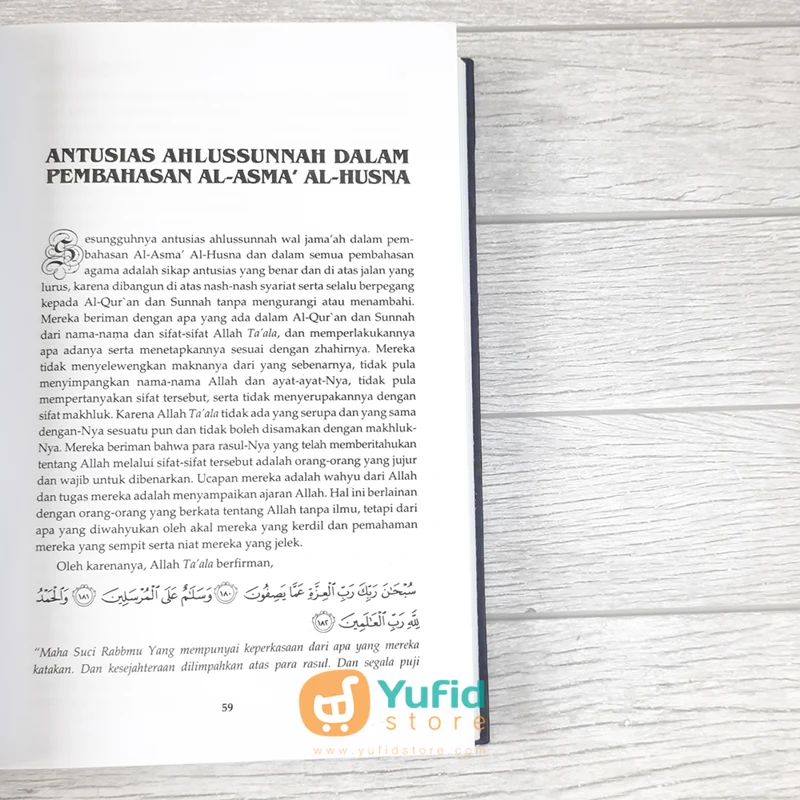 ANTUSIAS AHLUSSUNNAH DALAM
PEMBAHASAN AL-ASMA' AL-HUSNA
Sesungguhnya antusias ahlussunnah wal jama'ah dalam pem-
bahasan Al-Asma' Al-Husna dan dalam semua pembahasan
agama adalah sikap antusias yang benar dan di atas jalan yang
lurus, karena dibangun di atas nash-nash syariat serta selalu berpegang
kepada Al-Qur`an dan Sunnah tanpa mengurangi atau menambahi.
Mereka beriman dengan apa yang ada dalam Al-Qur`an dan Sunnah
dari nama-nama dan sifat-sifat Allah Ta'ala, dan memperlakukannya
apa adanya serta menetapkannya sesuai dengan zhahirnya. Mereka
tidak menyelewengkan maknanya dari yang sebenarnya, tidak pula
menyimpangkan nama-nama Allah dan ayat-ayat-Nya, tidak pula
mempertanyakan sifat tersebut, serta tidak menyerupakannya dengan
sifat makhluk. Karena Allah Ta'ala tidak ada yang serupa dan yang sama
dengan-Nya sesuatu pun dan tidak boleh disamakan dengan makhluk-
Nya. Mereka beriman bahwa para rasul-Nya yang telah memberitahukan
tentang Allah melalui sifat-sifat tersebut adalah orang-orang yang jujur
dan wajib untuk dibenarkan. Ucapan mereka adalah wahyu dari Allah
dan tugas mereka adalah menyampaikan ajaran Allah. Hal ini berlainan
dengan orang-orang yang berkata tentang Allah tanpa ilmu, tetapi dari
apa yang diwahyukan oleh akal mereka yang kerdil dan pemahaman
mereka yang sempit serta niat mereka yang jelek.
Oleh karenanya, Allah Ta'ala berfirman,
سُبْحَٰنَ رَبِّكَ رَبِّ ٱلْعِزَّةِ عَمَّا يَصِفُونَ ١٨٠ وَسَلَٰمٌ عَلَى ٱلْمُرْسَلِينَ ١٨١ وَٱلْحَمْدُ
لِلَّهِ رَبِّ ٱلْعَٰلَمِينَ ١٨٢
"Maha Suci Rabbmu Yang mempunyai keperkasaan dari apa yang mereka
katakan. Dan kesejahteraan dilimpahkan atas para rasul. Dan segala puji
59
Yufid
store
www.yufidstore.com